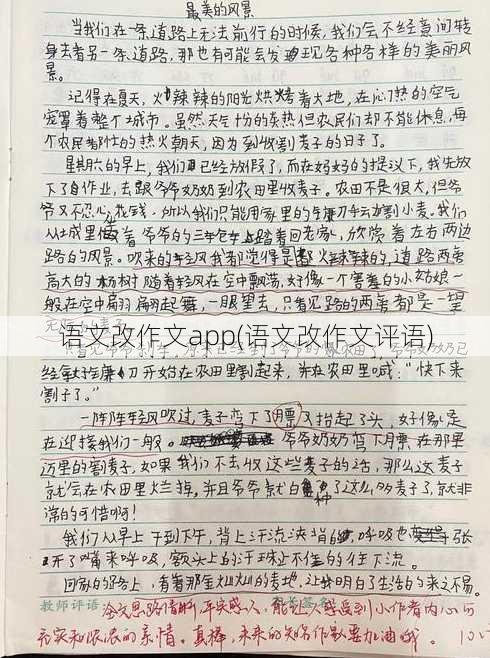 最美的风景
当我们在一条道路上无法前行的时候,我们会不经意间转
身去看另一条道路,那也有可能会发现各种各样的美丽风
景。
记得在夏天,火辣辣的阳光烘烤着大地,在闷热的空气
笼罩着整个城市。虽然天气十分的炎热但农民们却不能休息,每
个农民都忙的热火朝天,因为到收割麦子的日子了。
星期六的早上,我们已经放假了,而在妈妈的提议下,我先放
下了自作业,去跟爷爷奶奶到农田里收麦子。农田不是很大,但爷
爷又不忍心花钱,所以我们只能用家里的镰刀去割小麦。我们
从城里坐着爷爷的三轮车上路着回老家,欣赏着左右两边
路的风景。吹来的轻风我都觉得是火辣辣的,道路两旁
高大的杨树随着轻风在空中飘荡,好像一个害羞的小姑娘一
般在空中翩翩起舞,一眼望去,只看见路的两旁都是一望
语文改作文app(语文改作文评语)
经拿镰刀开始在农田里割起来,并在农田里喊:“快下来
割子了。”
一阵阵轻风吹过,麦子弯下了腰又抬起了头,好像是
在迎接我们一般。爷爷奶奶弯下腰在那里
迈里的割麦子,如果我们不去收这些麦子的话,那么这麦子
就会在农田里烂掉。并且爷爷就白种了这么多麦子了,就非
常的可惜啊!
我们从早上干到下午,背上汗流浃背的,呼吸也变得张
开了嘴来呼吸,额头上的汗珠止不住的往下流。
回家的路上,看着那金灿灿的麦地,让我明白了生活的来之不易。
教师评语
全文思路清晰,真实感人,能让人感受到小作者内心的
充实和浓浓的亲情。真棒,未来的知名作家要加油哦。